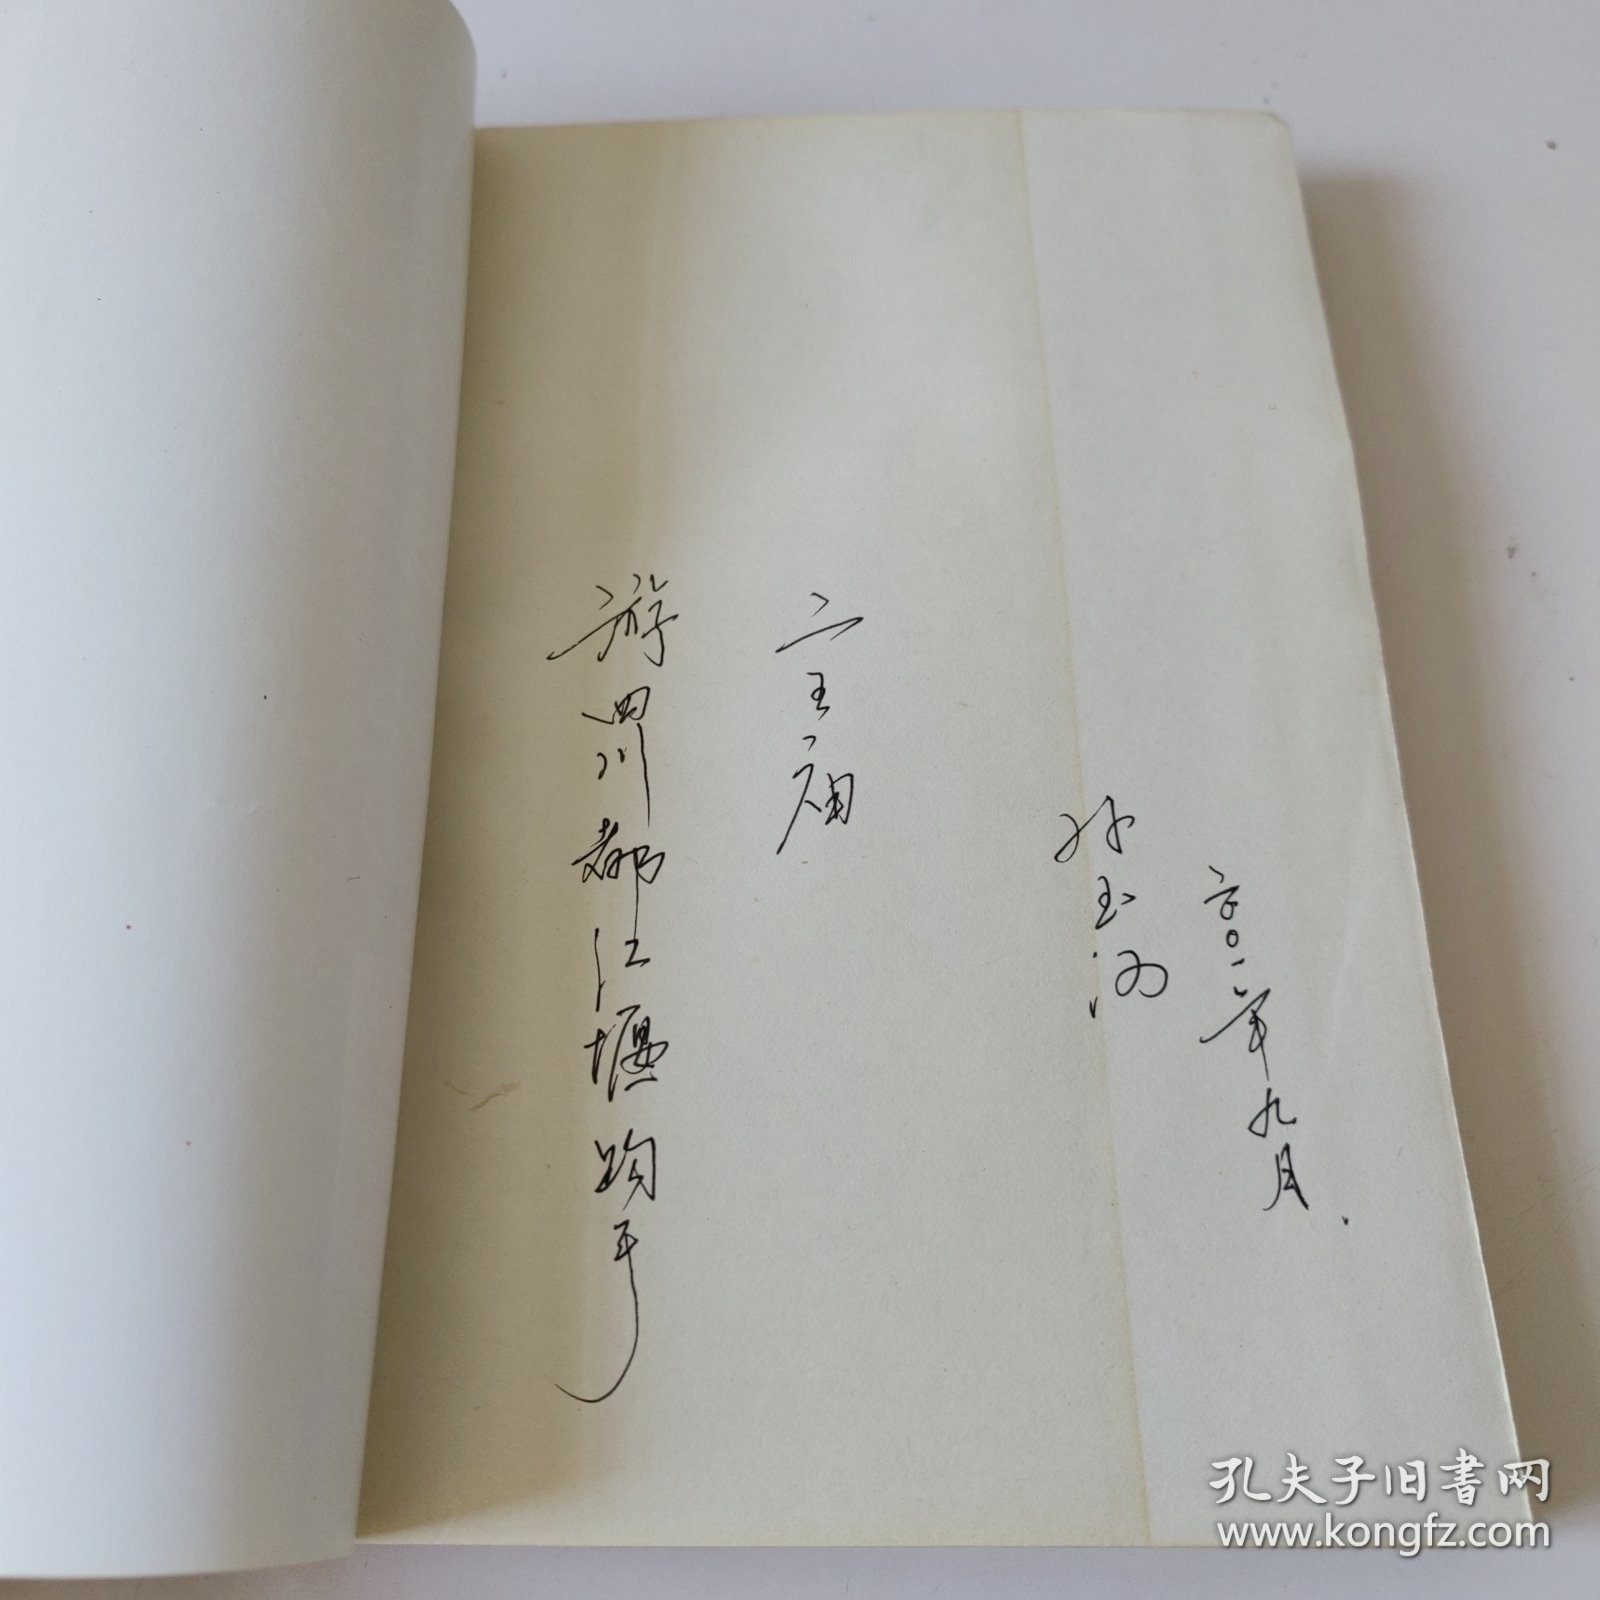 游四川都江堰购于
二王庙
孙玉
二〇〇一年九月.
孔夫子旧书网
www.kongfz.com